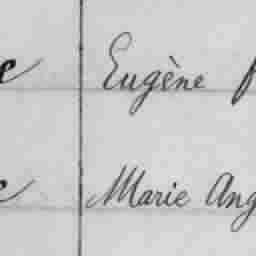 Eugène
Marie Ang